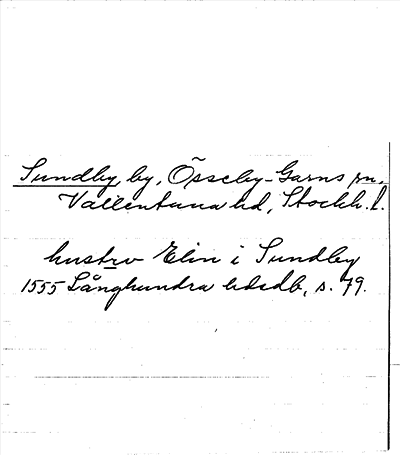 Sundby, by, Össeby-Garns sn,
Vallentuna hd, Stockh. l.
hustrv Elin i Sundby
1555 Långhundra hdsdb, s. 79.